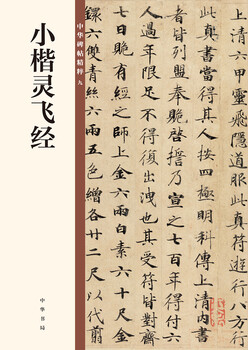 小楷灵飞经
中华碑帖精粹 九
中华书局
上清六甲靈飛隱道服此真符遊行八方行
此真書當得其人按四極明科傳上清內書
者皆列盟奉跪啟誓乃宣之七百年得付六
人過年限足不得復出洩也其受符皆對齋
七日賝有經之師上金六兩白素六十尺金
鐶六雙青絲六兩五色繒各廿二尺以代翦